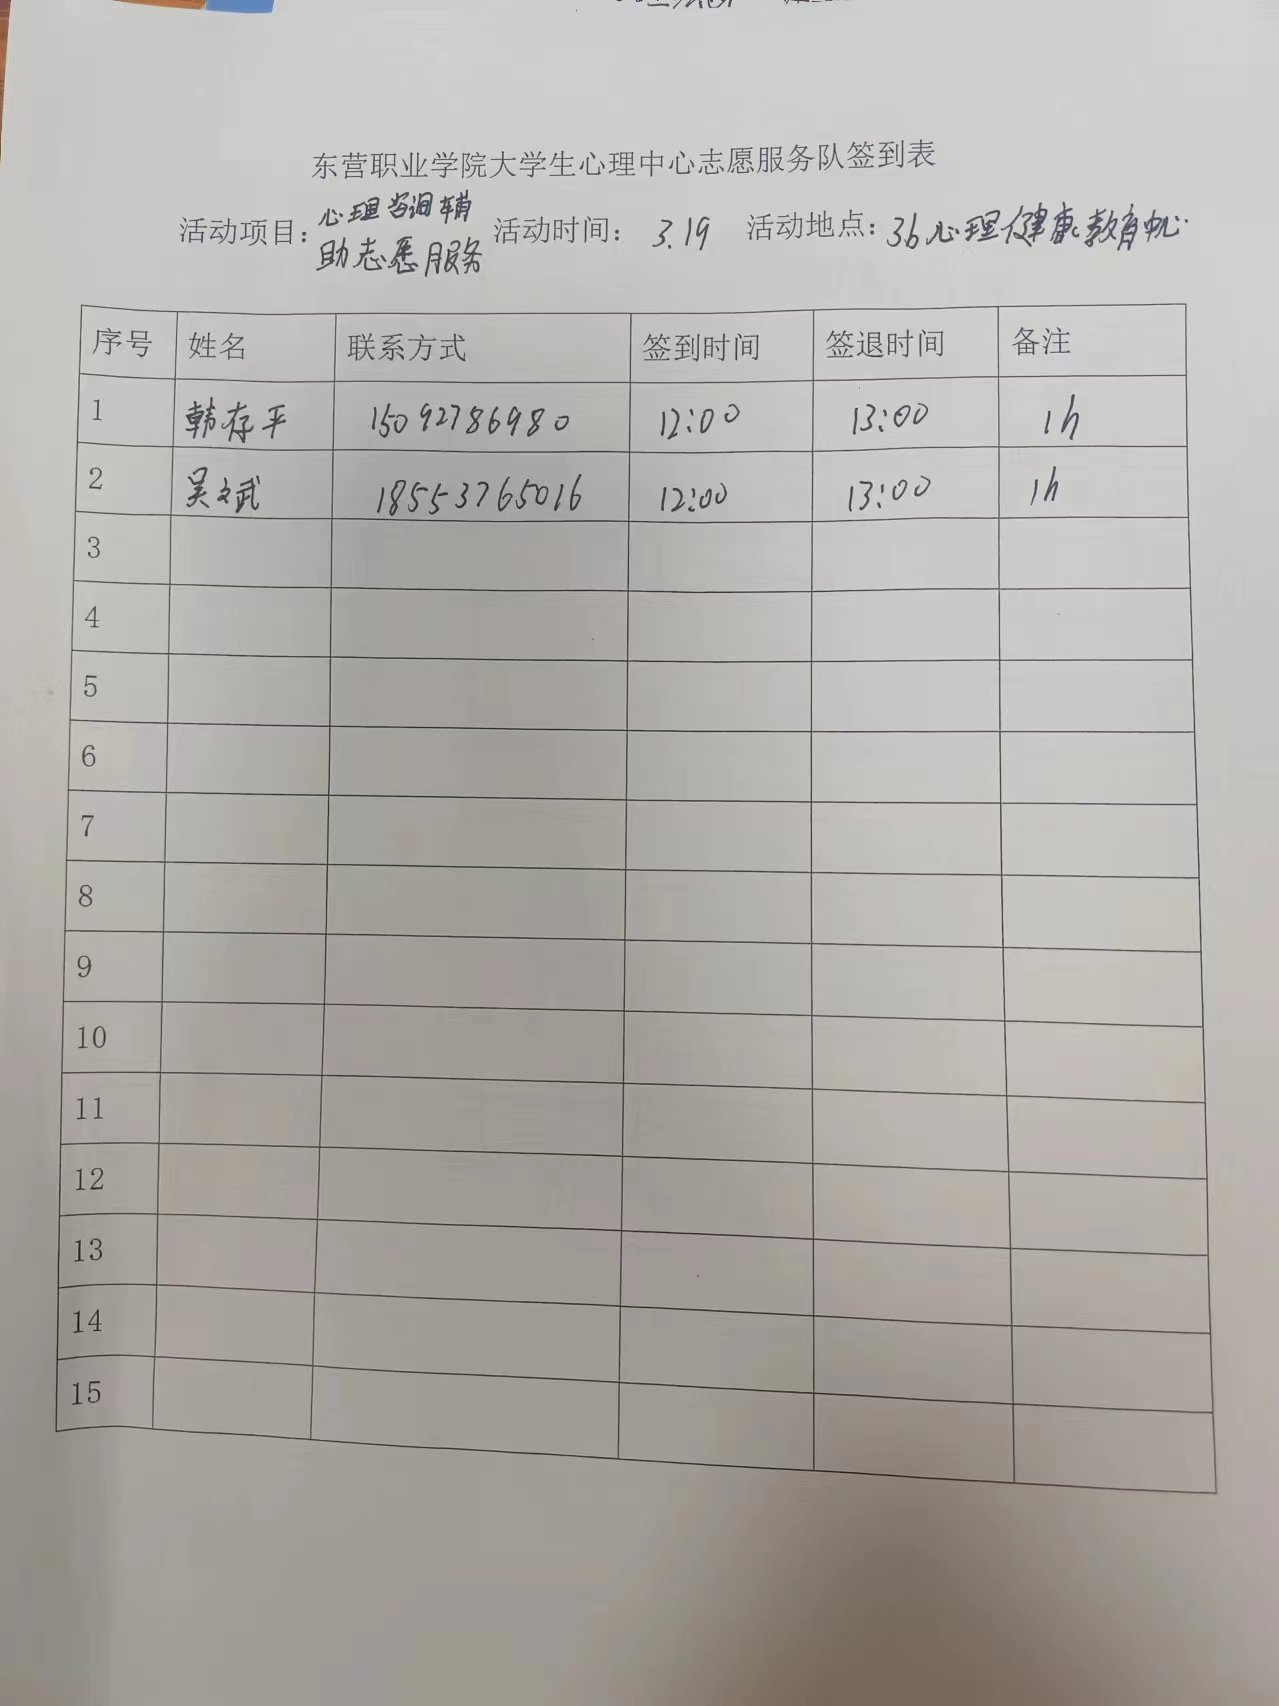 东营职业学院大学生心理中心志愿服务队签到表
活动项目：心理咨询辅助志愿服务 活动时间： 3.19 活动地点：36心理健康教育中心
序号 姓名 联系方式 签到时间 签退时间 备注
1 韩存平 15092786980 12:00 13:00 1h
2 吴文武 18553765016 12:00 13:00 1h
3
4
5
6
7
8
9
10
11
12
13
14
15